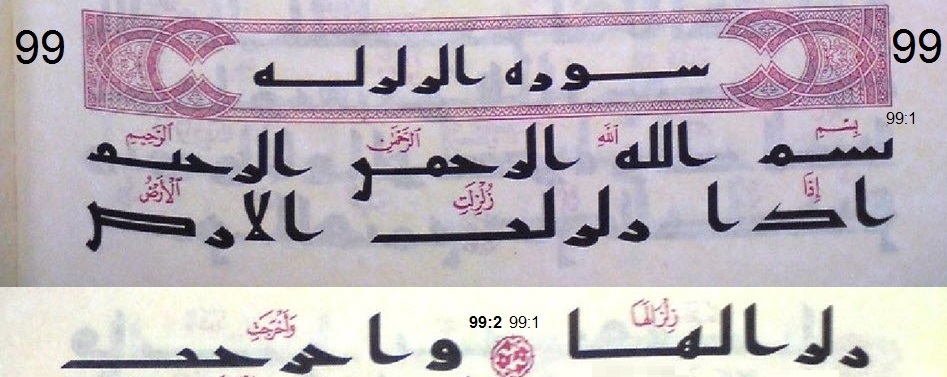 99 سورة الزلزلة 99
99:1
بِسْمِ ٱللَّهِ ٱلرَّحْمَٰنِ ٱلرَّحِيمِ
بسم الله الرحمن الرحيم
إِذَا زُلْزِلَتِ ٱلْأَرْضُ
اذا زلزلت الارض
زِلْزَالَهَا 99:1 99:2 وَأَخْرَجَتِ
زلزالها واخرجت